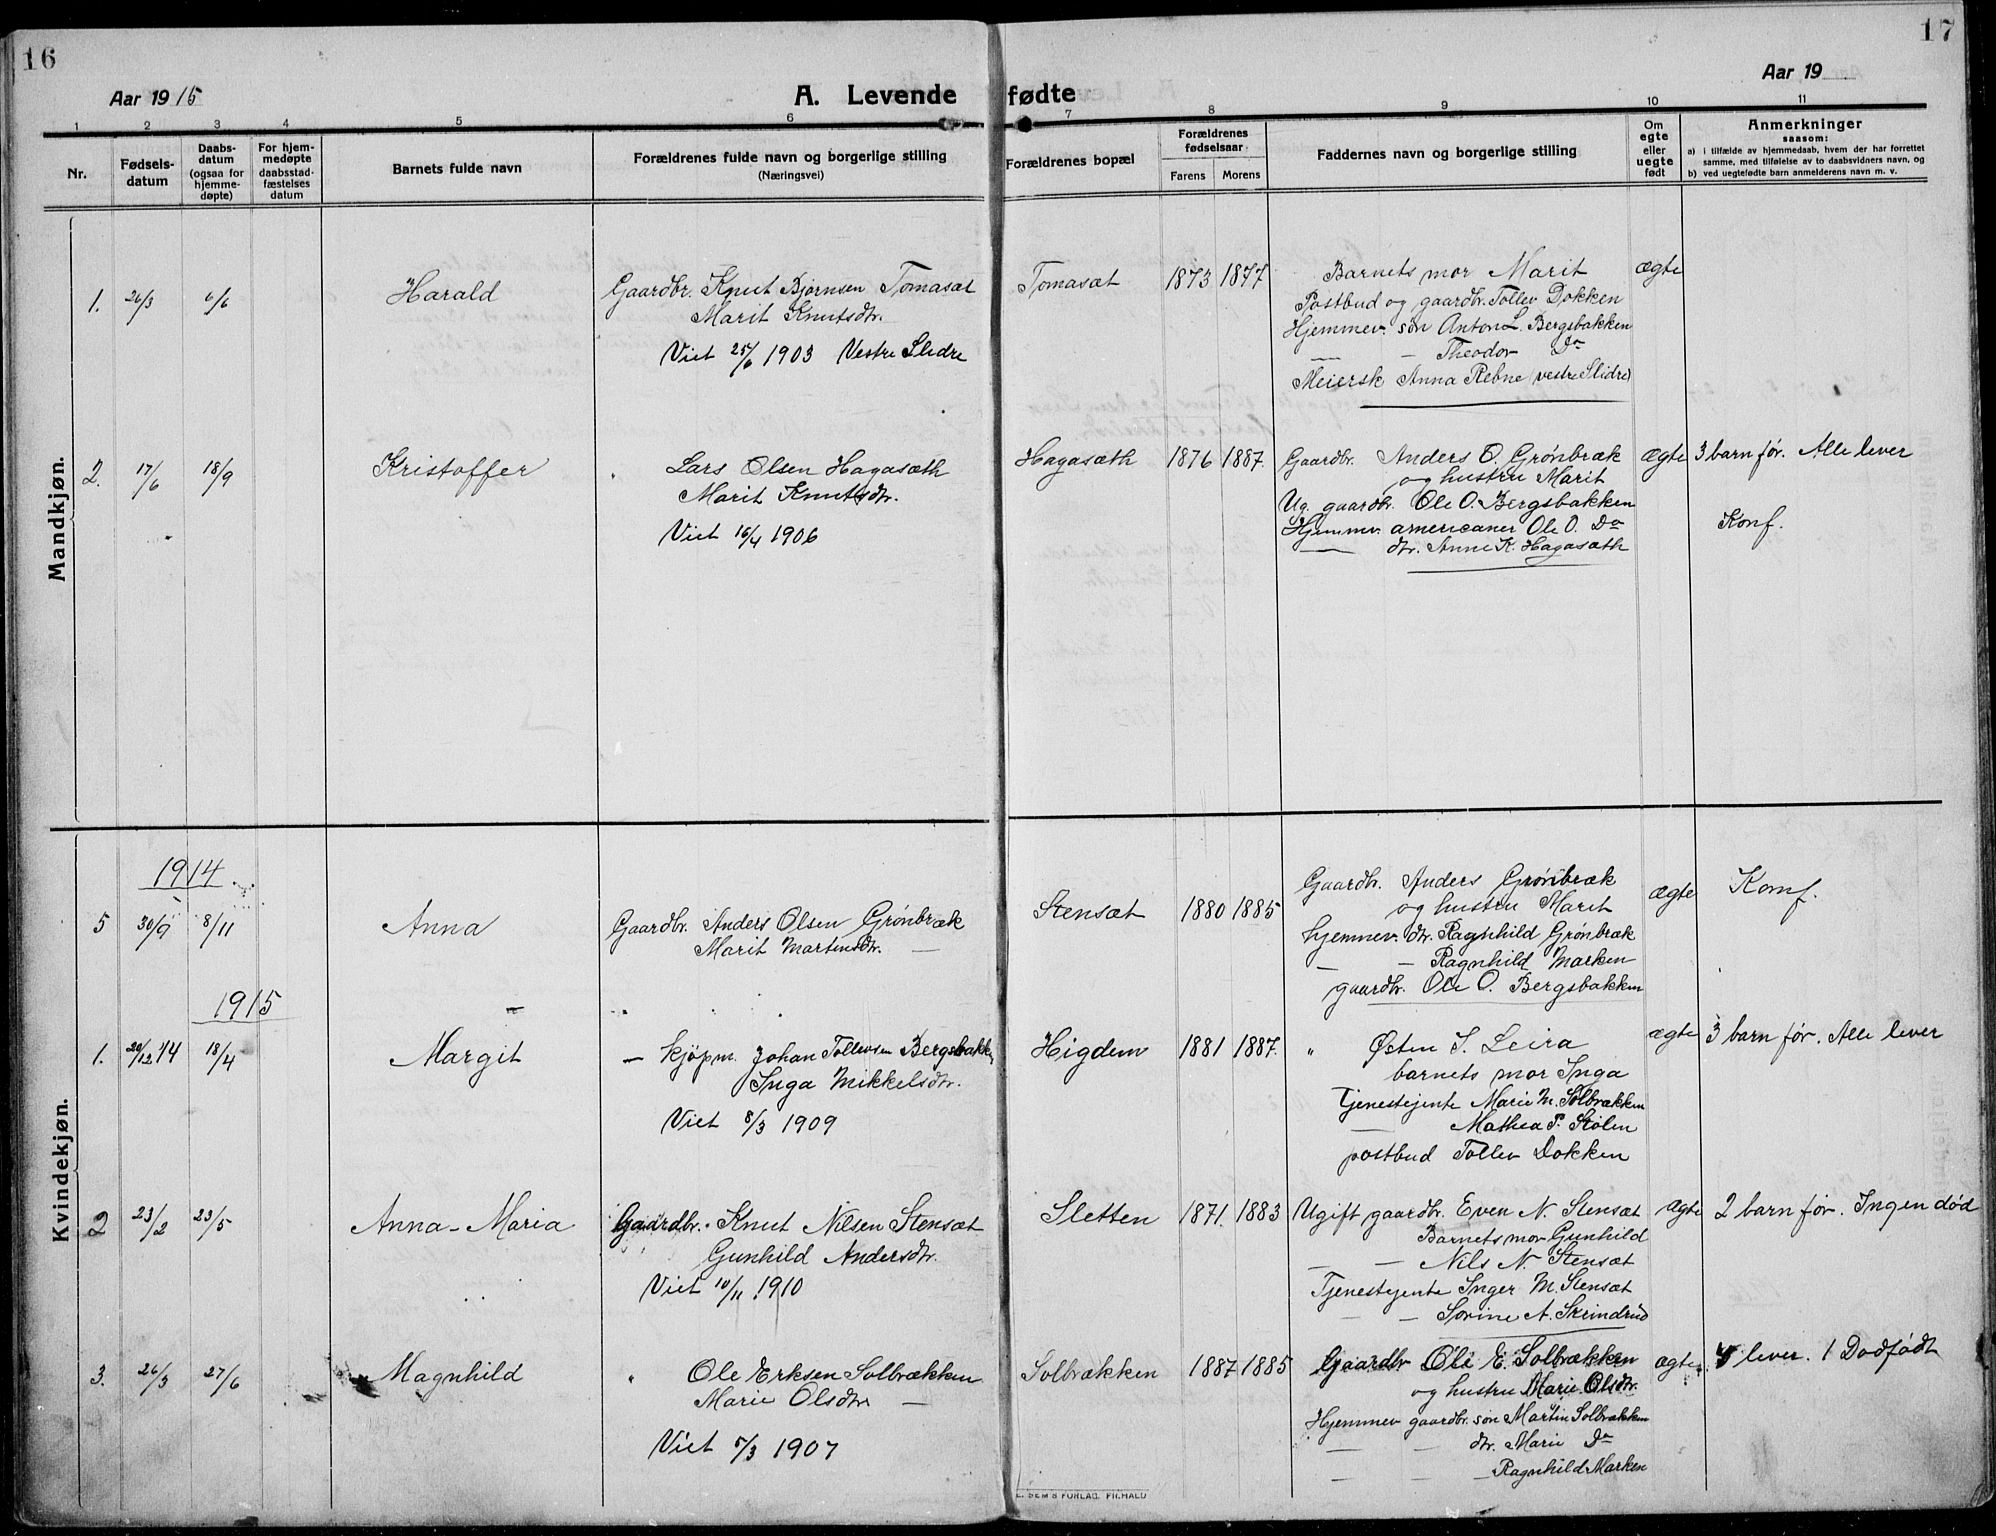 16
17
Aar 1915
A. Levende fødte
Aar 19
1 2 3 4 5 6 7 8 9 10 11
Nr.
Fødsels-
datum
Daabs-
datum
(ogsaa for
hjemme-
døpte)
For hjem-
medøpte
daabsstad-
fæstelses
datum
Barnets fulde navn
Forældrenes fulde navn og borgerlige stilling
(Næringsvei)
Forældrenes bopæl
Forældrenes
fødselsaar
Farens Morens
Faddernes navn og borgerlige stilling
Om
egte
eller
uegte
født
Anmerkninger
saasom:
a) i tilfælde av hjemmedaab, hvem der har forrettet
samme, med tilføielse av to daabsvidners navn, og
b) ved uegtefødte barn anmelderens navn m. v.
Mandkjøn.
1. 26/3 6/6 Harald
Gaardbr. Knut Bjørnsen Tomasæt
Marit Knutsdtr.
Viet 25/6 1903 Vestre Slidre
Tomasæt 1873 1877
Barnets mor Marit
Postbud og gaardbr. Tollev Dokken
Hjemmev. søn Anton L. Bergsbakken
— — Theodor Do
Meiersk Anna Rebne (vestre Slidre)
ægte
2. 17/6 18/9 Kristoffer
" Lars Olsen Hagasæth
Marit Knutsdtr.
Viet 16/4 1906
Hagasæth 1876 1887.
Gaardbr. Anders O. Grønbræk
og hustru Marit
Ug. gaardbr. Ole O. Bergsbakken
Hjemmv. americaner Ole O. Do
— dtr. Anne K. Hagasæth
ægte
3 barn før. Alle lever
Konf.
Kvindekjøn.
1914
5 30/9 8/11 Anna
Gaardbr. Anders Olsen Grønbræk
Marit Martinsdtr. —
Stensæt 1880 1885
Gaardbr. Anders Grønbræk
og hustru Marit
hjemmev. dtr. Ragnhild Grønbræk
— — Ragnhild Marken
gaardbr. Ole O. Bergsbakken
ægte
Konf.
1915
1. 20/12 14 18/4 Margit
— Kjøpm. Johan Tollevsen Bergsbakk
Inga Mikkelsdtr.
Viet 8/3 1909
Higdem 1881 1887.
" Østen I. Leira
barnets mor Inga
Tjenestejente Marie M. Solbrækken
Mathea P. Stølen
postbud Tollev Dokken
ægte
3 barn før. Alle lever
2 23/2 23/5 Anna-Maria
Gaardbr. Knut Nilsen Stensæt
Gunhild Andersdtr.
Viet 10/11 1910
Sletten 1871. 1883
Ugift gaardbr. Even N. Stensæt
Barnets mor Gunhild
— — Nils N. Stensæt
Tjenestejente Inger M. Stensæt
— — Sorine A. Skrindrud
Ægte
2 barn før. Ingen død
3. 26/3 27/6 Magnhild
" Ole Erksen Solbrækken
Marie Olsdtr —
Viet 5/3 1907
Solbrækken 1887 1885
Gaardbr Ole E. Solbrækken
og hustru Marie Olsdtr.
Hjemmev gaardbr. søn Martin Solbrækken
— — dtr. Marie Do
— — — Ragnhild Marken
ægte
4 lever. 1 Dødfødt
E. SEM'S FORLAG. FR.HALD